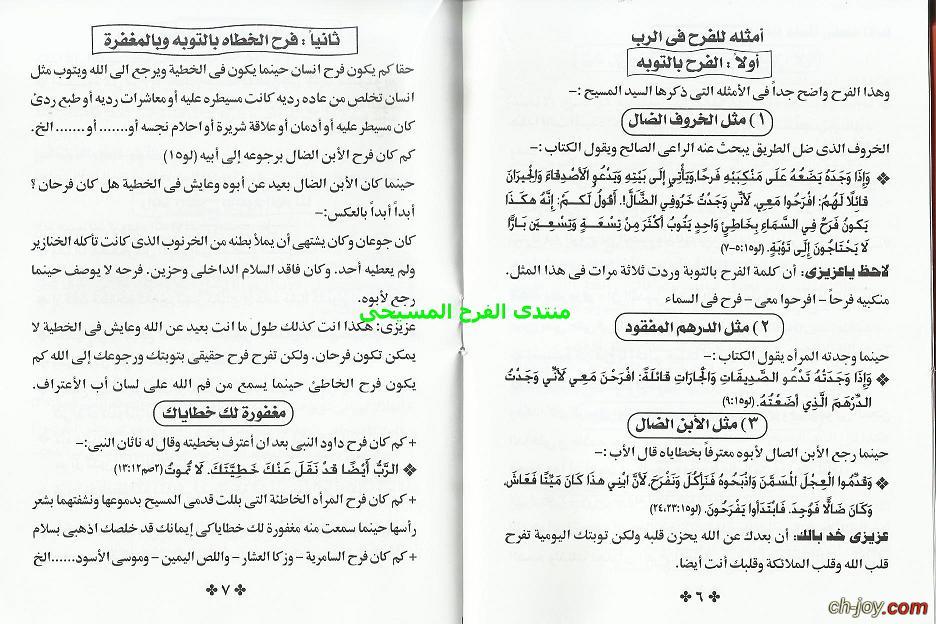 أمثله للفرح فى الرب
أولاً : الفرح بالتوبه
وهذا الفرح واضح جداً فى الأمثله التى ذكرها السيد المسيح :-
١ ) مثل الخروف الضال
الخروف الذى ضل الطريق يبحث عنه الراعى الصالح ويقول الكتاب :-
❖ وَإِذَا وَجَدَهُ يَضَعُهُ عَلَى مَنْكِبَيْهِ فَرِحًا، وَيَأْتِي إِلَى بَيْتِهِ وَيَدْعُو الأَصْدِقَاءَ وَالْجِيرَانَ
قَائِلًا لَهُمُ: افْرَحُوا مَعِي، لأَنِّي وَجَدْتُ خَرُوفِي الضَّالَّ!. أَقُولُ لَكُمْ: إِنَّهُ هكَذَا
يَكُونُ فَرَحٌ فِي السَّمَاءِ بِخَاطِئٍ وَاحِدٍ يَتُوبُ أَكْثَرَ مِنْ تِسْعَةٍ وَتِسْعِينَ بَارًّا
لاَ يَحْتَاجُونَ إِلَى تَوْبَةٍ. (لو١٥:٥-٧)
لاحظ ياعزيزى: أن كلمة الفرح بالتوبة وردت ثلاثة مرات فى هذا المثل.
منكبيه فرحاً – افرحوا معى – فرح فى السماء
٢ ) مثل الدرهم المفقود
حينما وجدته المرأه يقول الكتاب :-
❖ وَإِذَا وَجَدَتْهُ تَدْعُو الصَّدِيقَاتِ وَالْجَارَاتِ قَائِلَةً: افْرَحْنَ مَعِي لأَنِّي وَجَدْتُ
الدِّرْهَمَ الَّذِي أَضَعْتُهُ. (لو٩:١٥)
٣ ) مثل الأبن الضال
حينما رجع الأبن الصال لأبوه معترفاً بخطاياه قال الأب :-
❖ وَقَدِّمُوا الْعِجْلَ الْمُسَمَّنَ وَاذْبَحُوهُ فَنَأْكُلَ وَنَفْرَحَ، لأَنَّ ابْنِي هذَا كَانَ مَيِّتًا فَعَاشَ،
وَكَانَ ضَالًّا فَوُجِدَ. فَابْتَدَأُوا يَفْرَحُونَ. (لو١٥:٢٣،٢٤)
عزيزى خد بالك: أن بعدك عن الله يحزن قلبه ولكن توبتك اليومية تفرح
قلب الله وقلب الملائكة وقلبك أنت أيضا.
❖ ٦ ❖
ثانياً : فرح الخطاه بالتوبه وبالمغفرة
حقا كم يكون فرح انسان حينما يكون فى الخطية ويرجع الى الله ويتوب مثل
انسان تخلص من عاده رديه كانت مسيطره عليه أو معاشرات رديه أو طبع ردئ
كان مسيطر عليه أو أدمان أو علاقة شريرة أو احلام نجسه أو....... أو ....... الخ.
كم كان فرح الأبن الضال برجوعه إلى أبيه (لو١٥)
حينما كان الأبن الضال بعيد عن أبوه وعايش فى الخطية هل كان فرحان ؟
أبداً أبداً بالعكس:-
كان جوعان وكان يشتهى أن يملأ بطنه من الخرنوب الذى كانت تأكله الخنازير
ولم يعطيه أحد. وكان فاقد السلام الداخلى وحزين. فرحه لا يوصف حينما
رجع لأبوه.
منتدى الفرح المسيحى
عزيزى: هكذا انت كذلك طول ما انت بعيد عن الله وعايش فى الخطية لا
يمكن تكون فرحان. ولكن تفرح فرح حقيقى بتوبتك ورجوعك إلى الله كم
يكون فرح الخاطئ حينما يسمع من فم الله على لسان أب الأعتراف.
مغفورة لك خطاياك
+ كم كان فرح داود النبى بعد ان أعترف بخطيته وقال له ناثان النبى:-
❖ الرَّبُّ أَيْضًا قَدْ نَقَلَ عَنْكَ خَطِيَّتَكَ. لاَ تَمُوتُ (٢صم١٣:١٢)
+ كم كان فرح المرأه الخاطئة التى بللت قدمى المسيح بدموعها ونشفتهما بشعر
رأسها حينما سمعت منه مغفورة لك خطاياكى إيمانك قد خلصك اذهبى بسلام
+ كم كان فرح السامرية – وزكا العشار – واللص اليمين – وموسى الأسود......الخ
❖ ٧ ❖
ch-joy.com